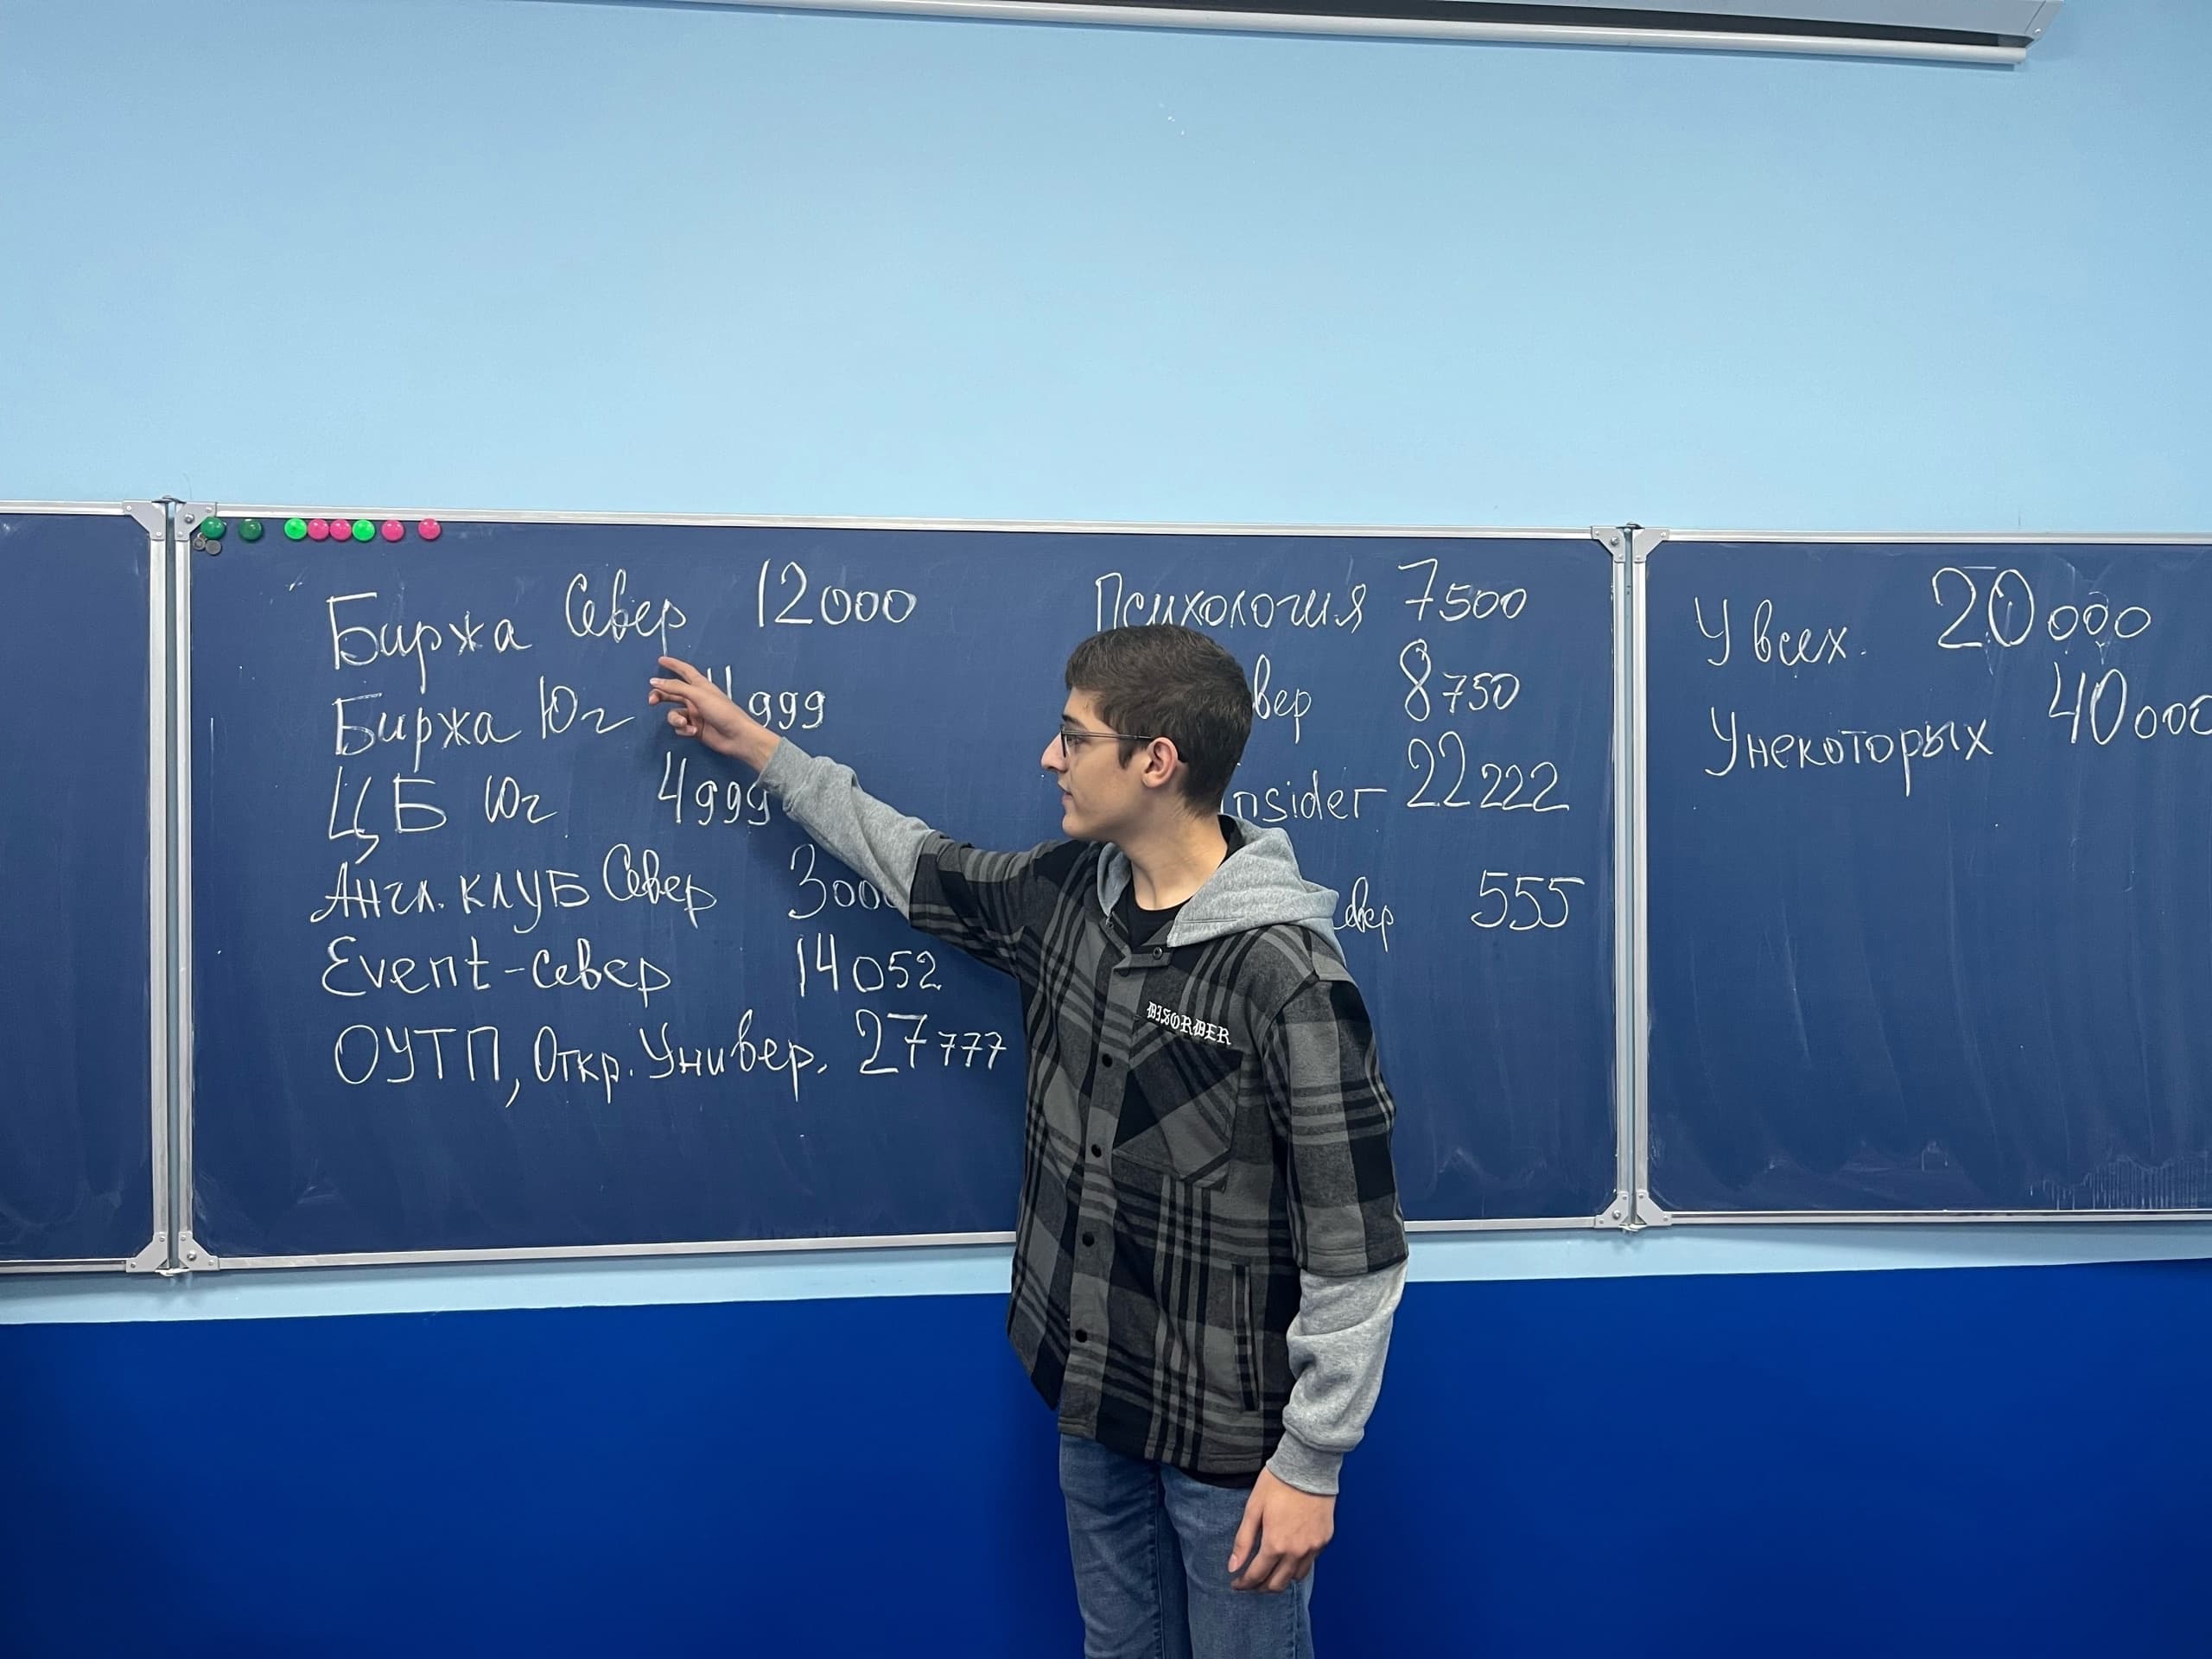 Биржа Север 12000
Биржа Юг
ЦБ Юг 4999
Англ. КЛУБ Север
Event-север 14052
ОУТП, Откр. Универ. 27777
Психология 7500
8750
nsider 22222
555
У всех. 20000
У некоторых 40000
DISORDER